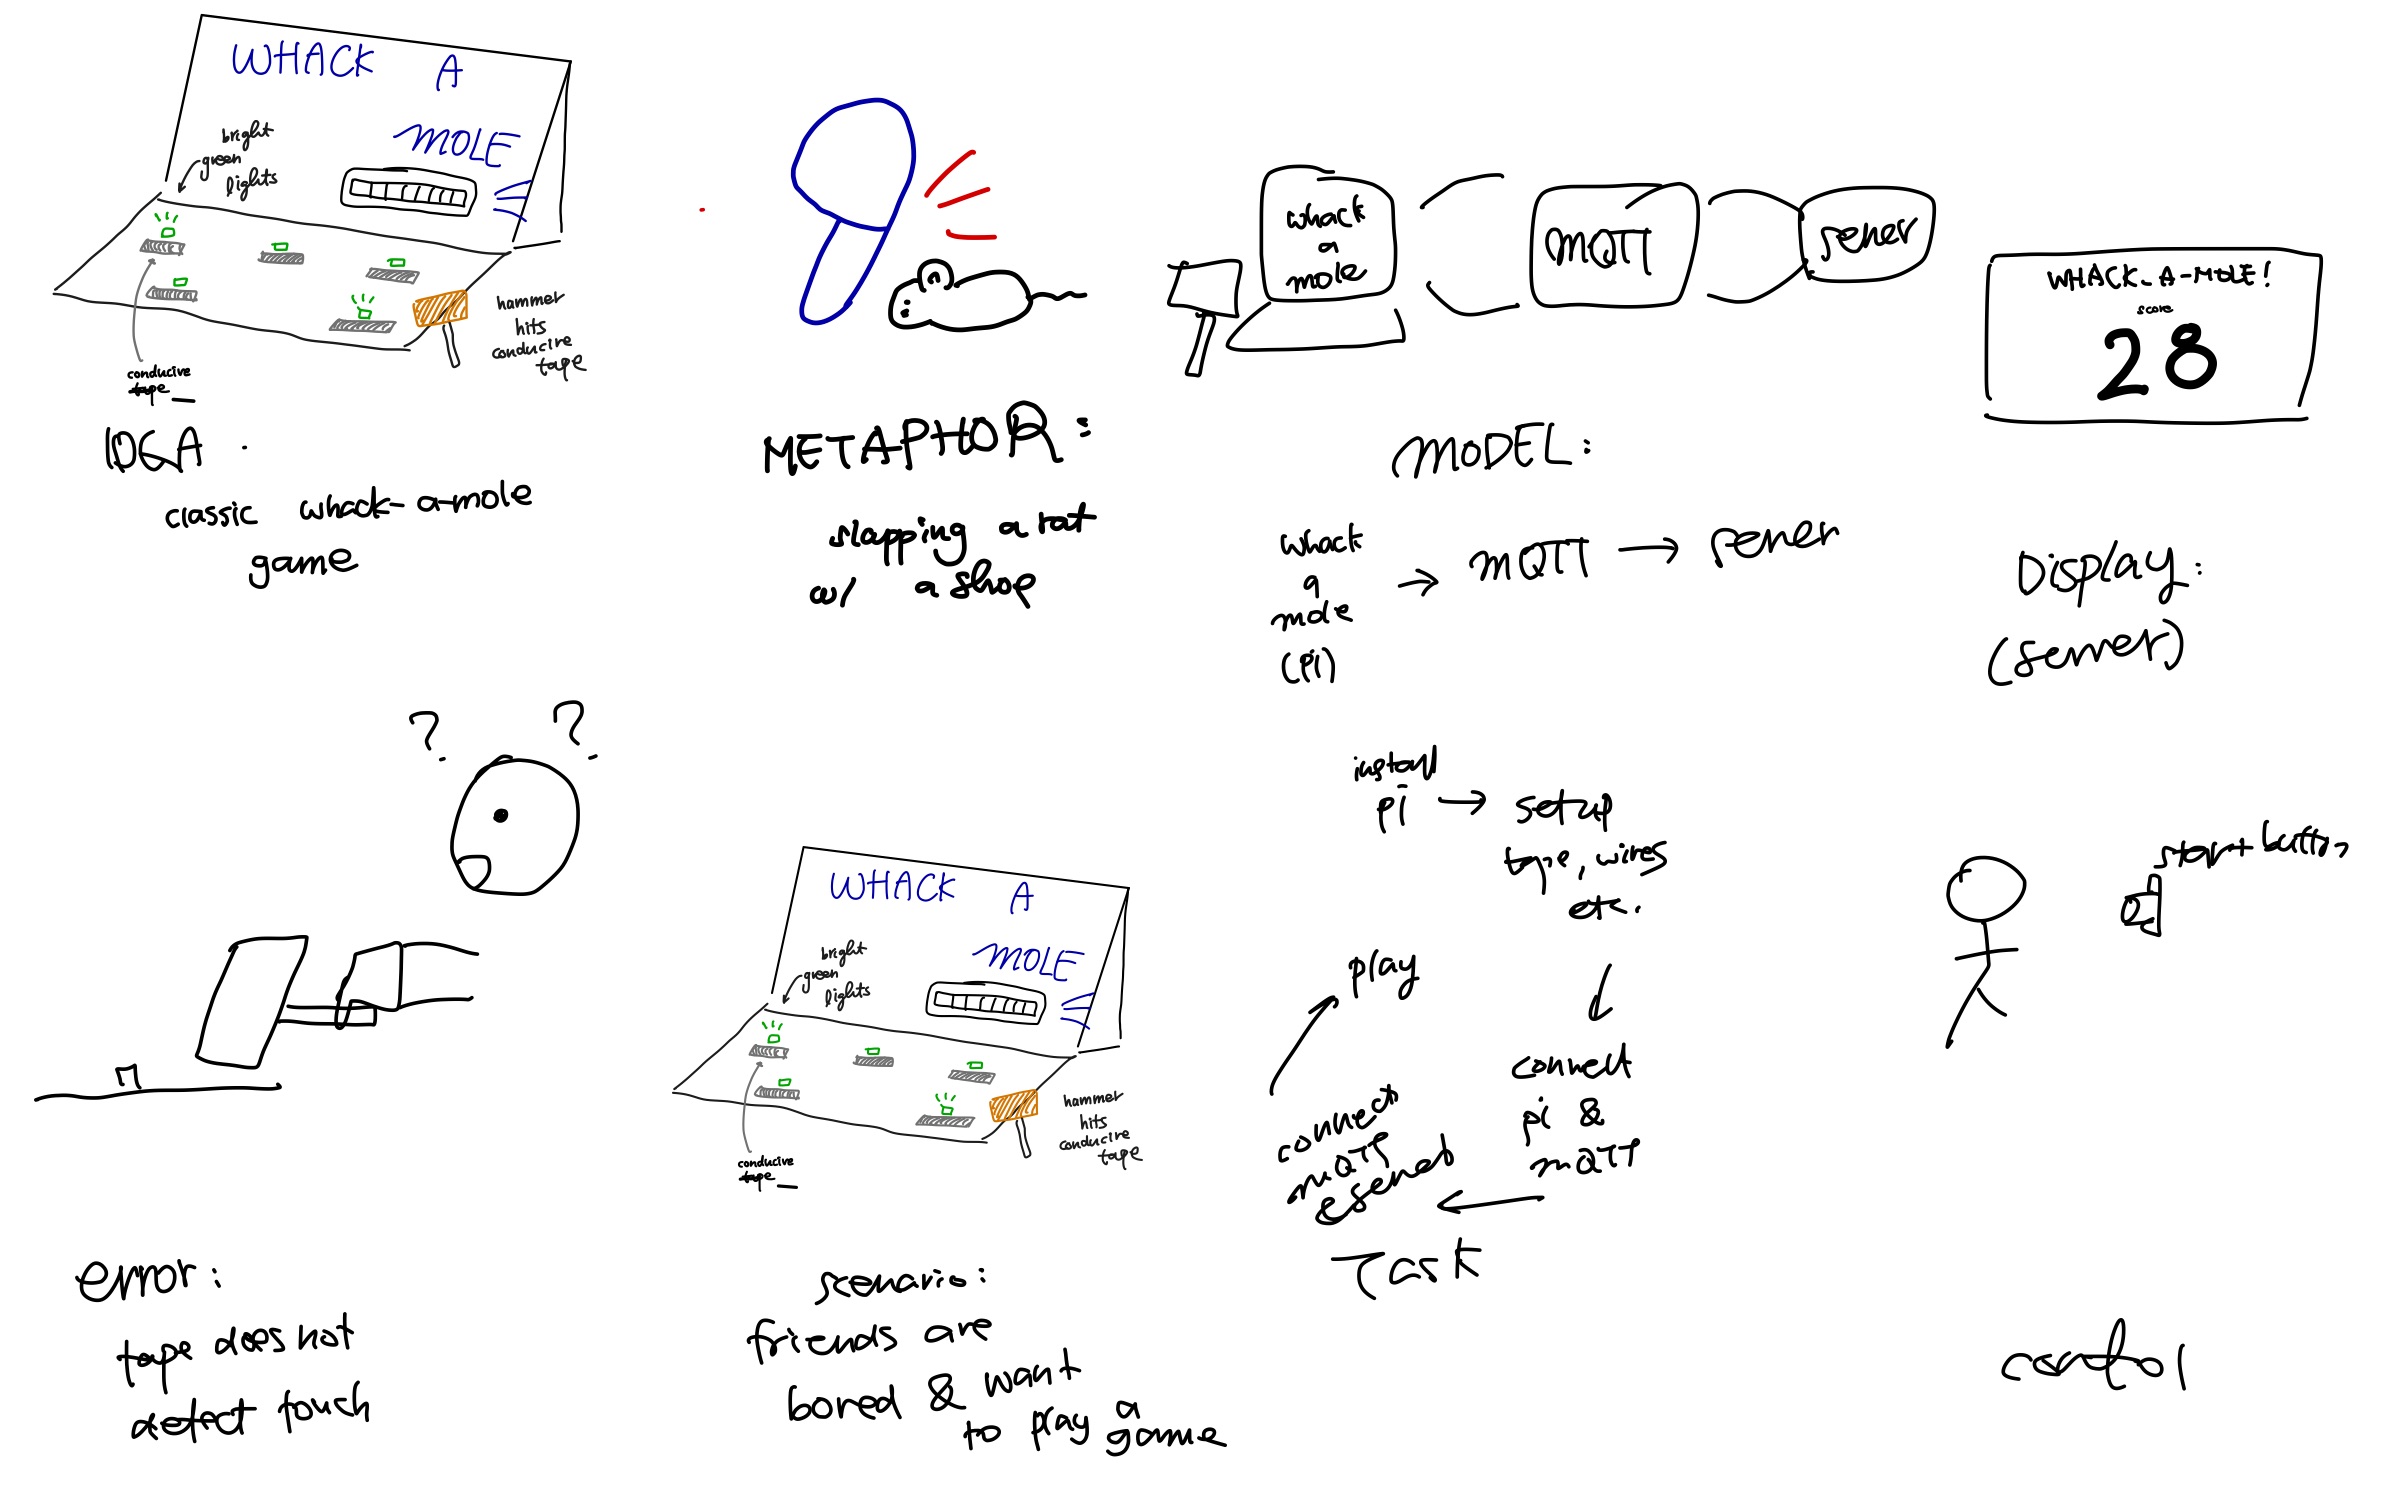 WHACK A
MOLE
bright
green
lights
hammer
hits
conducire
tape
conducive
tape
IDEA :
classic whack-a-mole
game
METAPHOR:
slapping a rat
w/ a shop
whack
a
mole
MQTT
server
MODEL:
whack
a
mole
(pi)
→ MQTT → server
WHACK-A-MOLE!
score
28
Display:
(server)
? ?
error:
tape does not
detect touch
WHACK A
MOLE
bright
green
lights
hammer
hits
conducire
tape
conducive
tape
scenario:
friends are
bored & want
to play a
game
install
pi → setup
tape, wires
etc.
connect
pi &
MQTT
connect
MQTT
play
Task
start button
control